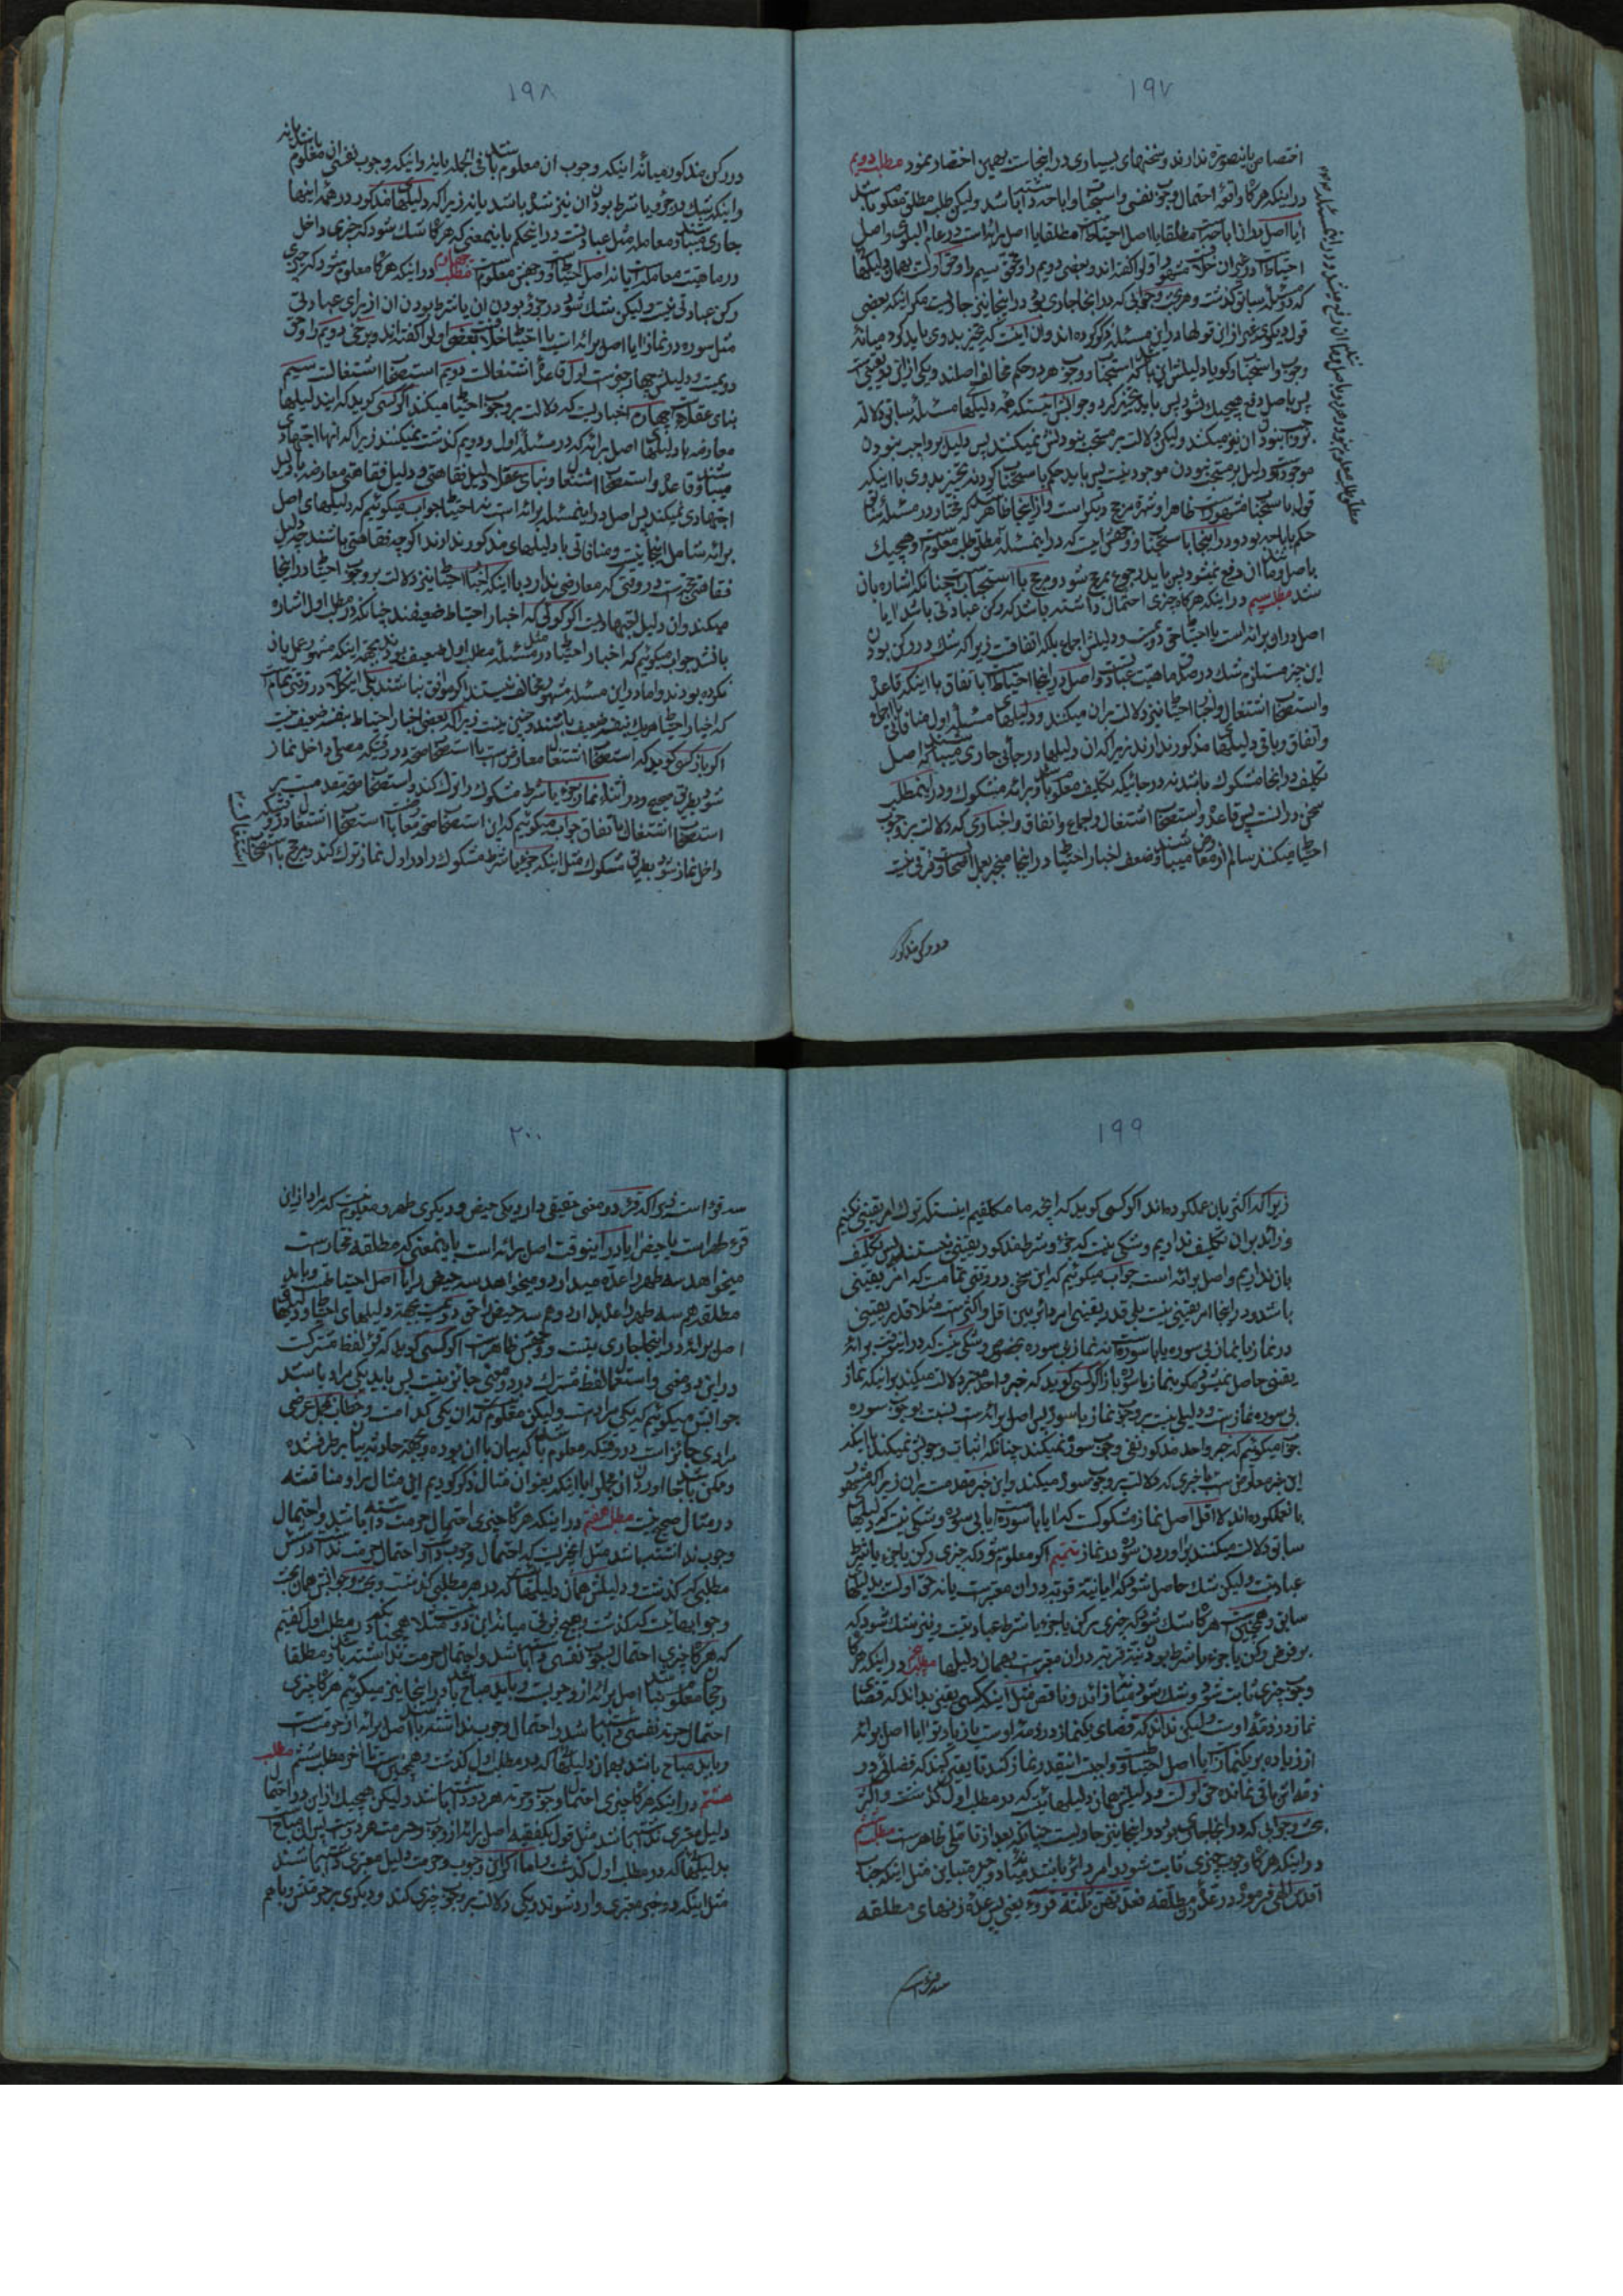 ۱۹۷
اختصاص باینصورة ندارند و سخنهای بسیاری در اینجاست بهمین اختصار نمود مطلب دویم
در اینکه هرگاه واقعه احتمال وجوب نفسی و استحباب و اباحه داشته باشد ولیکن طلب مطلق معلوم باشد
آیا اصل در ان اباحه است مطلقا یا اصل احتیاط است مطلقا یا اصل برائت است در عام البلوی و اصل
احتیاط است در غیر ان
که در مسئله سابق گذشت و هر بحث و جوابی که در انجا جاری بود در اینجا نیز جاریست مگر اینکه بعضی
قول دیگری غیر از ان قولها در این مسئله ذکر کرده‌اند و ان اینست که تخییر بدوی باید کرد میانه
وجوب و استحباب
پس باصل دفع هیچیک نشود پس باید تخییر کرد و جوابش اینستکه همه دلیلها مسئله سابق دلالة
موجود است و دلیل بر مستحب نبودن موجود نیست پس باید حکم باستحباب کرد نه تخییر بدوی با اینکه
حکم باباحه بود و در اینجا باستحباب و وجهش اینست که در این مسئله مطلق طلب معلوم است و هیچیک
باصل و مانند ان دفع نمیشود پس باید رجوع بمرجح شود و مرجح با استحباب است چنانکه اشاره بان
شد مطلب سیم در اینکه هرگاه چیزی احتمال داشته باشد که رکن عبادتی باشد ایا
اصل در او برائت است یا احتیاط حق دویمست و دلیلش اجماع بلکه اتفاقست زیرا که شک در رکن بودن
این چیز مستلزم شک در صدق ماهیت عبادتست و اصل در اینجا احتیاط است باتفاق با اینکه قاعده
و استصحاب اشتغال و اخبار احتیاط نیز دلالت بر ان میکنند و دلیلهای مسئله اول منافاتی با اجماع
و اتفاق و باقی دلیلهای مذکور ندارند زیرا که ان دلیلها در جائی جاری میباشند که اصل
تکلیف در انجا مشکوک باشد نه در جائیکه تکلیف معلوم باشد و برائت مشکوک و در این مطلب
سخن در انست پس قاعده و استصحاب اشتغال و اجماع و اتفاق و اخباری که دلالت بر وجوب
احتیاط میکنند سالم از معارض میباشند و ضعف اخبار احتیاط در اینجا منجبر بعمل اصحابست و فرقی نیست
در رکن مذکور
۱۹۸
در رکن مذکور میانه اینکه وجوب ان معلوم باشد فی الجمله یا نه و اینکه وجوب نفسی ان معلوم باشد یا نه
و اینکه شک در جزء یا شرط بودن ان نیز شده باشد یا نه زیرا که دلیلهای مذکور در همه اینها
جاری میباشند و معامله مثل عبادتست در این حکم باینمعنی که هرگاه شک شود که چیزی داخل
در ماهیت معامله است یا نه اصل احتیاط است و وجهش معلومست مطلب چهارم در اینکه هرگاه معلوم شود که چیزی
رکن عبادتی نیست ولیکن شک شود در جزء بودن ان یا شرط بودن ان از برای عبادتی
مثل سوره در نماز ایا اصل برائت است یا احتیاط خلافست بعضی اولرا گفته‌اند و برخی دویمرا و حق
دویمست و دلیلش چهار چیز است اول قاعده اشتغالست دویم استصحاب اشتغالست سیم
بنای عقلاست چهارم اخباریست که دلالت بر وجوب احتیاط میکنند اگر کسی گوید که این دلیلها
معارضه با دلیلهای اصل برائت که در مسئله اول و دویم گذشت نمیکنند زیرا که انها اجتهادی
میباشند و قاعده و استصحاب اشتغال و بنای عقلا دلیل فقاهتی و دلیل فقاهتی معارضه با دلیل
اجتهادی نمیکند پس اصل در این مسئله برائت است نه احتیاط جواب میگوئیم که دلیلهای اصل
برائت شامل اینجا نیست و منافاتی با دلیلهای مذکور ندارند اگرچه فقاهتی باشند چه دلیل
فقاهتی حجتست در وقتی که معارضی ندارد با اینکه اخبار احتیاط نیز دلالت بر وجوب احتیاط در اینجا
میکند و ان دلیل اجتهادیست اگر گوئی که اخبار احتیاط ضعیفند چنانکه در مطلب اول اشاره
بان شد جواب میگوئیم که اخبار احتیاط در مثل مسئله مطلب اول ضعیف بودند بجهة اینکه مشهور عمل بان
نکرده بودند و اما در این مسئله مشهور مخالف نیستند اگر موافق نباشند بلی این کلام در وقتی تمام است
که اخبار احتیاط هر یک بنفسه ضعیف باشند و چنین نیست زیرا که بعضی اخبار احتیاط بنفسه ضعیف نیست
اگر باز کسی گوید که استصحاب اشتغال معارض است با استصحاب صحة در وقتیکه مصلی داخل نماز
شود بطریق صحیح و در اثناء نماز جزء یا شرط مشکوک را ترک کند و استصحاب صحة مقدمست بر
استصحاب اشتغال باتفاق جواب میگوئیم که این استصحاب صحة معارض است با استصحاب اشتغال در وقتیکه
داخل نماز شود بطریق مشکوک مثل اینکه جزء یا شرط مشکوک را در اول نماز ترک کند و مرجح با استصحاب
۱۹۹
زیرا که اکثر بان عمل کرده‌اند اگر کسی گوید که انچه ما مکلفیم اینستکه ترک امر یقینی نکنیم
و زائد بر ان تکلیف نداریم و شکی نیست که جزء و شرط مذکور یقینی نیستند پس تکلیف
بان نداریم و اصل برائت است جواب میگوئیم که این سخن در وقتی تمامست که امر یقینی
باشد و در اینجا امر یقینی نیست بلی قدر یقینی امر دائر بین اقل و اکثر است مثلا قدر یقینی
در نماز یا نماز بی سوره یا با سوره است نه نماز بی سوره بخصوص و شکی نیست که در اینوقت برائة
یقینی حاصل نمیشود مگر بنماز با سوره باز اگر کسی گوید که خبر واحد معتبر دلالت میکند بر اینکه نماز
بی سوره نماز است و دلیلی نیست بر وجوب نماز با سوره پس اصل برائت است نسبت بوجوب سوره
جواب میگوئیم که خبر واحد مذکور نفی وجوب سوره نمیکند چنانکه اثبات وجوبش نمیکند با اینکه
این خبر معارض است با خبری که دلالت بر وجوب سوره میکند و این خبر مقدمست بر ان زیرا که مشهور
بان عمل کرده‌اند لا اقل اصل نماز مشکوکست که ایا با سوره است یا بی سوره و شکی نیست که دلیلهای
سابق دلالت میکنند بر اوردن سوره در نماز تتمیم اگر معلوم شود که چیزی رکن یا جزء یا شرط
عبادتست ولیکن شک حاصل شود که ایا نیة قربة در ان معتبر است یا نه حق اولست بدلیلهای
سابق و همچنین است هرگاه شک شود که چیزی رکن یا جزء یا شرط عبادتست و نیز شک شود که
بر فرض رکن یا جزء یا شرط بودن نیة قربة در ان معتبر است بهمان دلیلها مطلب پنجم در اینکه هرگاه
وجوب چیزی ثابت شود و شک شود میانه زائد و ناقص مثل اینکه کسی یقین بداند که قضای
نماز در ذمه اوست ولیکن نداند که قضای یکنماز در ذمه اوست یا زیادتر ایا اصل برائة
از زیاده بر یکنماز است یا اصل احتیاط است و واجبست انقدر نماز کند تا یقین کند که قضائی در
ذمه‌اش باقی نمانده حق اولست و دلیلش همان دلیلهائیست که در مطلب اول گذشت و اکثر
بحث و جوابی که در انجا جاری بود در اینجا نیز جاریست چنانکه بعد از تامل ظاهر است مطلب ششم
در اینکه هرگاه وجوب چیزی ثابت شود و امر دائر باشد میانه دو چیز متباین مثل اینکه جناب
اقدس الهی فرموده در عده مطلقه فعدتهن ثلثة قروء یعنی پس عده زنهای مطلقه
سه قرء است
۲۰۰
سه قرء است زیرا که قرء دو معنی حقیقی دارد یکی حیض و دیگری طهر و معلوم نیست که مراد از این
قرء طهر است یا حیض ایا در اینوقت اصل برائت است باینمعنی که مطلقه مختار است
میخواهد سه طهر را عده میدارد و میخواهد سه حیض را یا اصل احتیاط است و باید
مطلقه هم سه طهر را عده بدارد و هم سه حیض را حق دویمست بجهة دلیلهای احتیاط و دلیلهای
اصل برائت در اینجا جاری نیست و وجهش ظاهر است اگر کسی گوید که قرء لفظ مشترکست
در این دو معنی و استعمال لفظ مشترک در دو معنی جایز نیست پس باید یکی مراد باشد
جوابش میگوئیم که یکی مراد است ولیکن معلوم نیست که ان یکی کدامست و خطاب مجمل عرضی
در مثال صحیح نیست مطلب هفتم در اینکه هرگاه چیزی احتمال حرمت داشته باشد و احتمال
وجوب نداشته باشد
مطلبی که گذشت و دلیلش همان دلیلهاست که در هر مطلبی گذشت و بحث و جوابش همان بحث
و جوابهاست که گذشت و هیچ فرقی میانه این دو نیست مثلا همچنانکه در مطلب اول گفتیم
که هرگاه چیزی احتمال وجوب نفسی داشته باشد و احتمال حرمت نداشته باشد و مطلقا
رجحان معلوم نباشد اصل برائت از وجوبست و باید مباح باشد در اینجا نیز میگوئیم هرگاه چیزی
احتمال حرمة نفسی داشته باشد و احتمال وجوب نداشته باشد اصل برائت از حرمتست
و باید مباح باشد بهمان دلیلها که در مطلب اول گذشت و همچنین است تا اخر مطلب ششم مطلب
هشتم در اینکه هرگاه چیزی احتمال وجوب و حرمة هر دو داشته باشد ولیکن هیچیک از این دو احتمال
دلیل معتبری نداشته باشند مثل قول یکفقیه اصل برائت از وجوب و حرمت هر دو است پس ان مباح است
بدلیلهائیکه در مطلب اول گذشت و اما اگر این وجوب و حرمت دلیل معتبری داشته باشند
مثل اینکه دو خبر معتبری وارد شوند و یکی دلالت بر وجوب چیزی کند و دیگری بر حرمتش و با هم